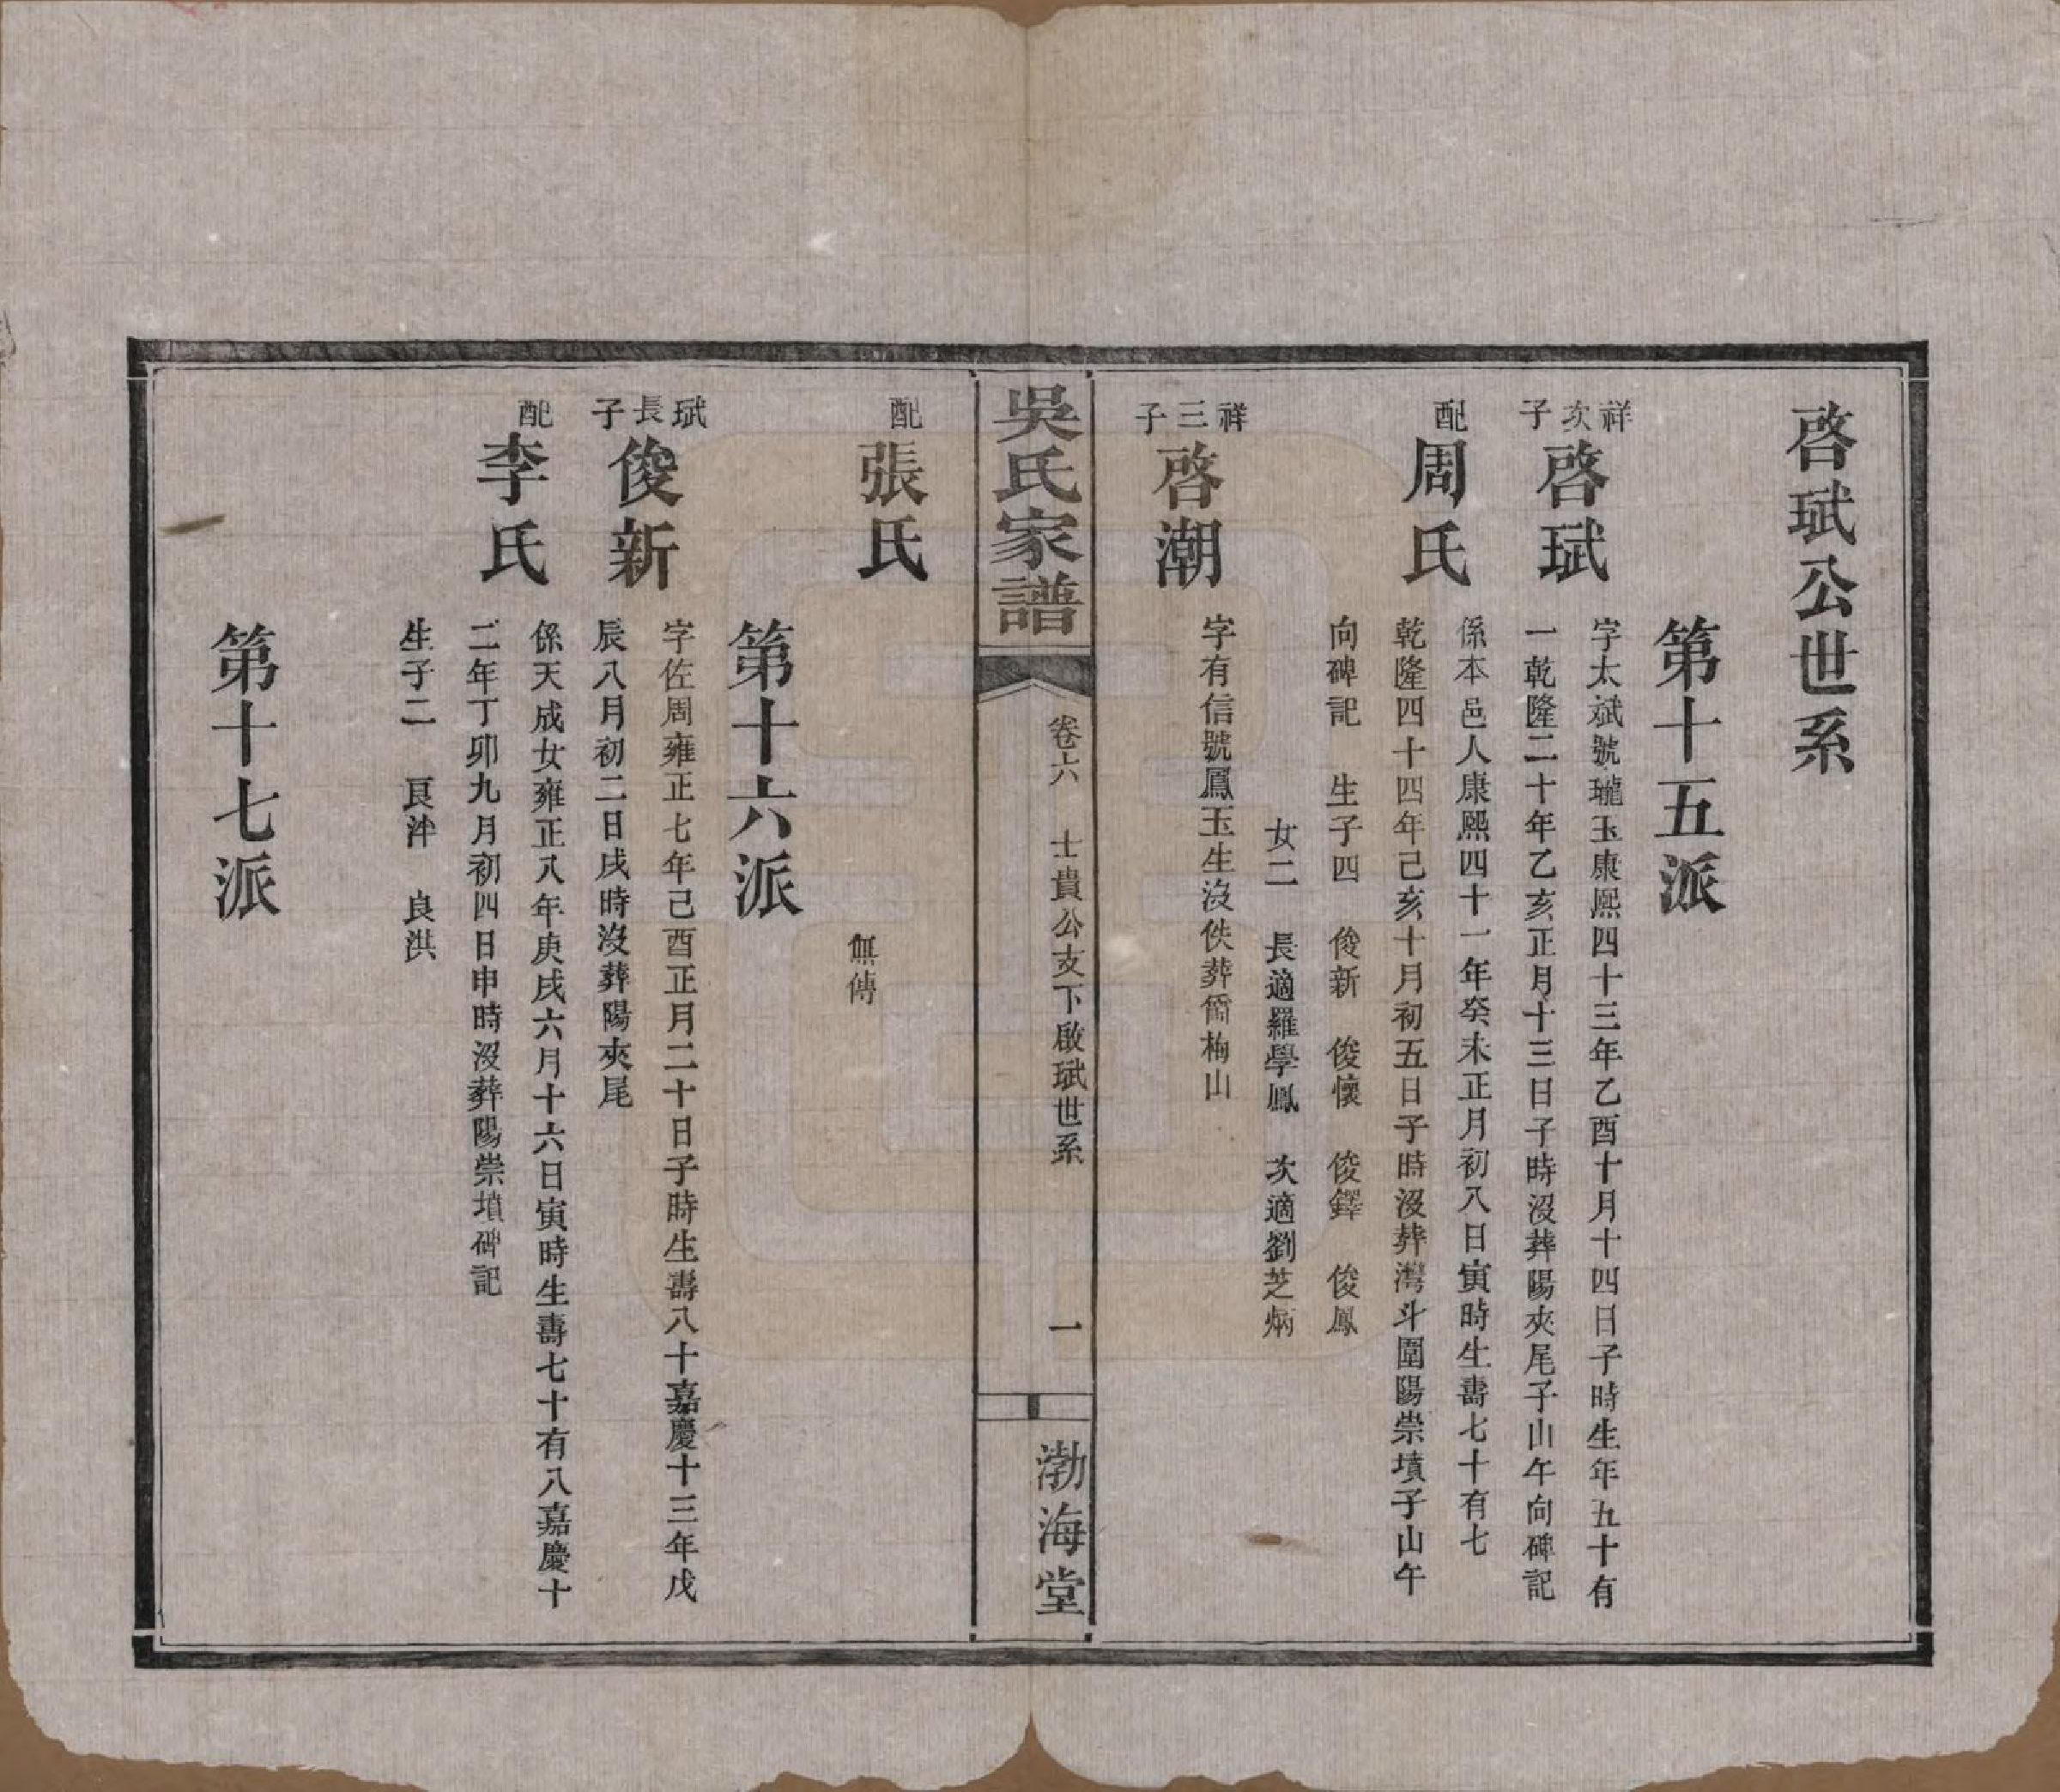 啓珷公世系
第十五派
祥次子
啓珷
字太斌號瓏玉康熙四十三年乙酉十月十四日子時生年五十有
一乾隆二十年乙亥正月十三日子時沒葬陽夾尾子山午向碑記
配
周氏
係本邑人康熙四十一年癸未正月初八日寅時生壽七十有七
乾隆四十四年己亥十月初五日子時沒葬灣斗圍陽崇墳子山午
向碑記　生子四　俊新　俊懷　俊鐸　俊鳳
女二　長適羅學鳳　次適劉芝炳
祥三子
啓潮
字有信號鳳玉生沒佚葬筒梅山
吳氏家譜
卷六　士貴公支下啟珷世系
一
渤海堂
配
張氏
無傳
第十六派
珷長子
俊新
字佐周雍正七年己酉正月二十日子時生壽八十嘉慶十三年戊
辰八月初二日戌時沒葬陽夾尾
配
李氏
係天成女雍正八年庚戌六月十六日寅時生壽七十有八嘉慶十
二年丁卯九月初四日申時沒葬陽崇墳碑記
生子二　良泮　良洪
第十七派